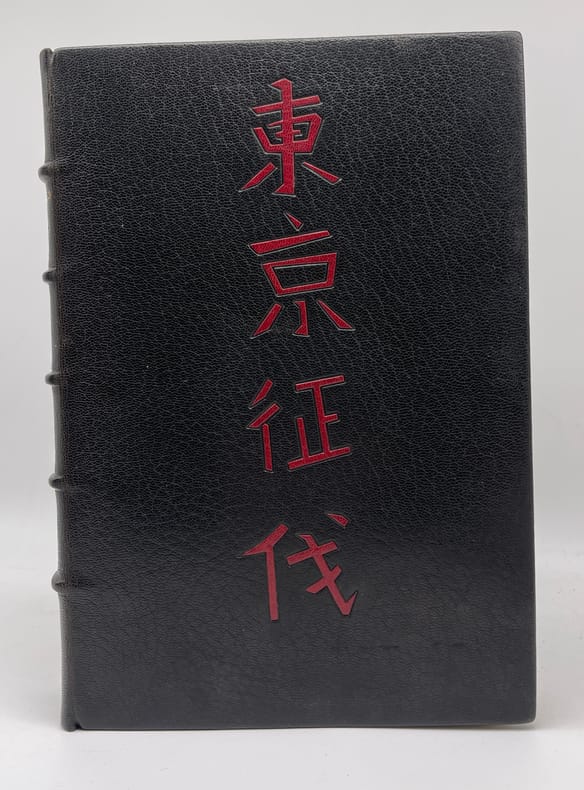 東京征伐